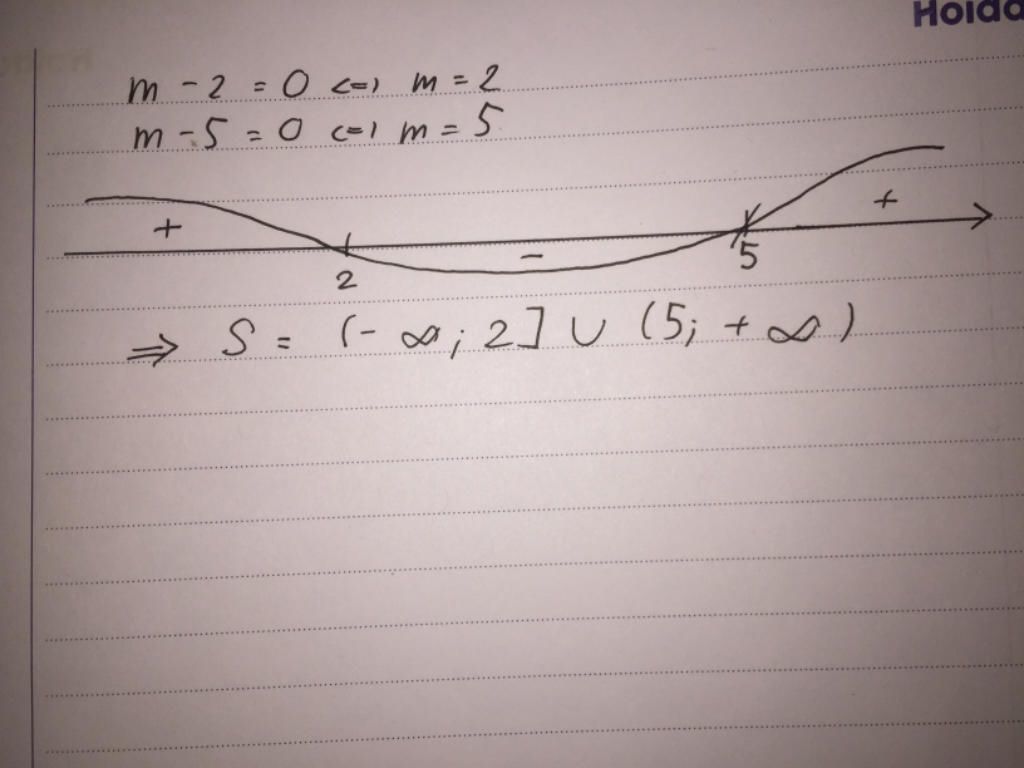 Holda
m - 2 = 0 <=> m = 2
m - 5 = 0 <=> m = 5
+ - +
2 5
⇒ S = (- ∞; 2] ∪ (5; + ∞)